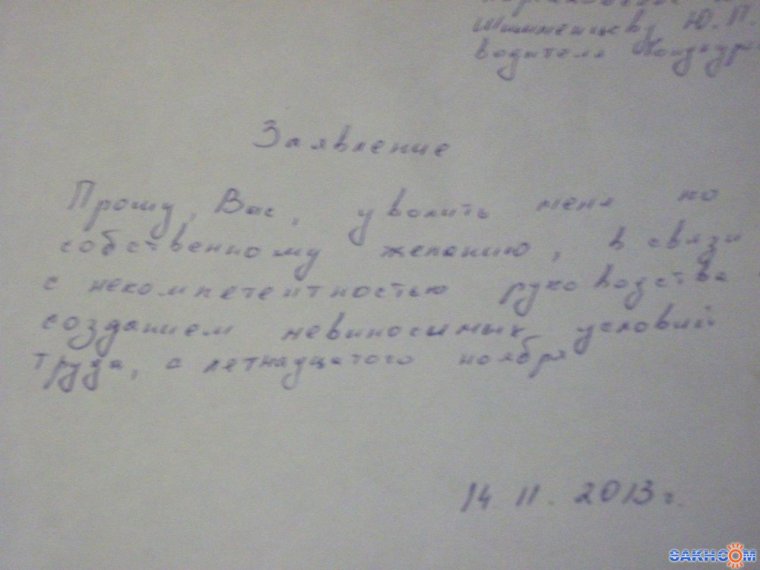 Ю. П.
водителя
Заявление
Прошу, Вас, уволить меня по
собственному желанию, в связи
с некомпетентностью руководства
созданием невиносимых условий
труда, с петнадцатого ноября
14 11. 2013 г.
SAKHCOM